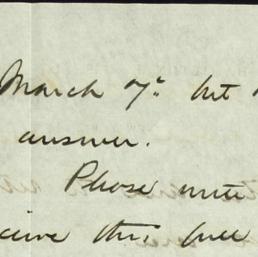 March 7th but
answer.
Please write
ceive this